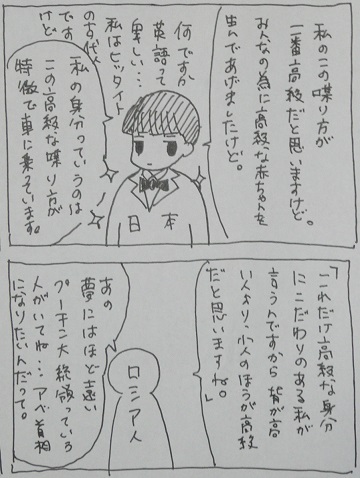 私のこの喋り方が
一番高級だと思いますけど。
みんなの為に高級な赤ちゃんを
出んであげましたけど。
何ですか
英語って
卑しい…
私はヒッタイト
の古代人
です
けど
私の身分っていうのは
この高級な喋り方が
特徴で車に乗っています。
日本
「これだけ高級な身分
にこだわりのある私が
言うんですから背が高
い人より小人のほうが高級
だと思いますね。」
あの
夢にはほど遠い
プーチン大統領っている
人がいてね…アベ首相
になりたいんだって。
ロシア人